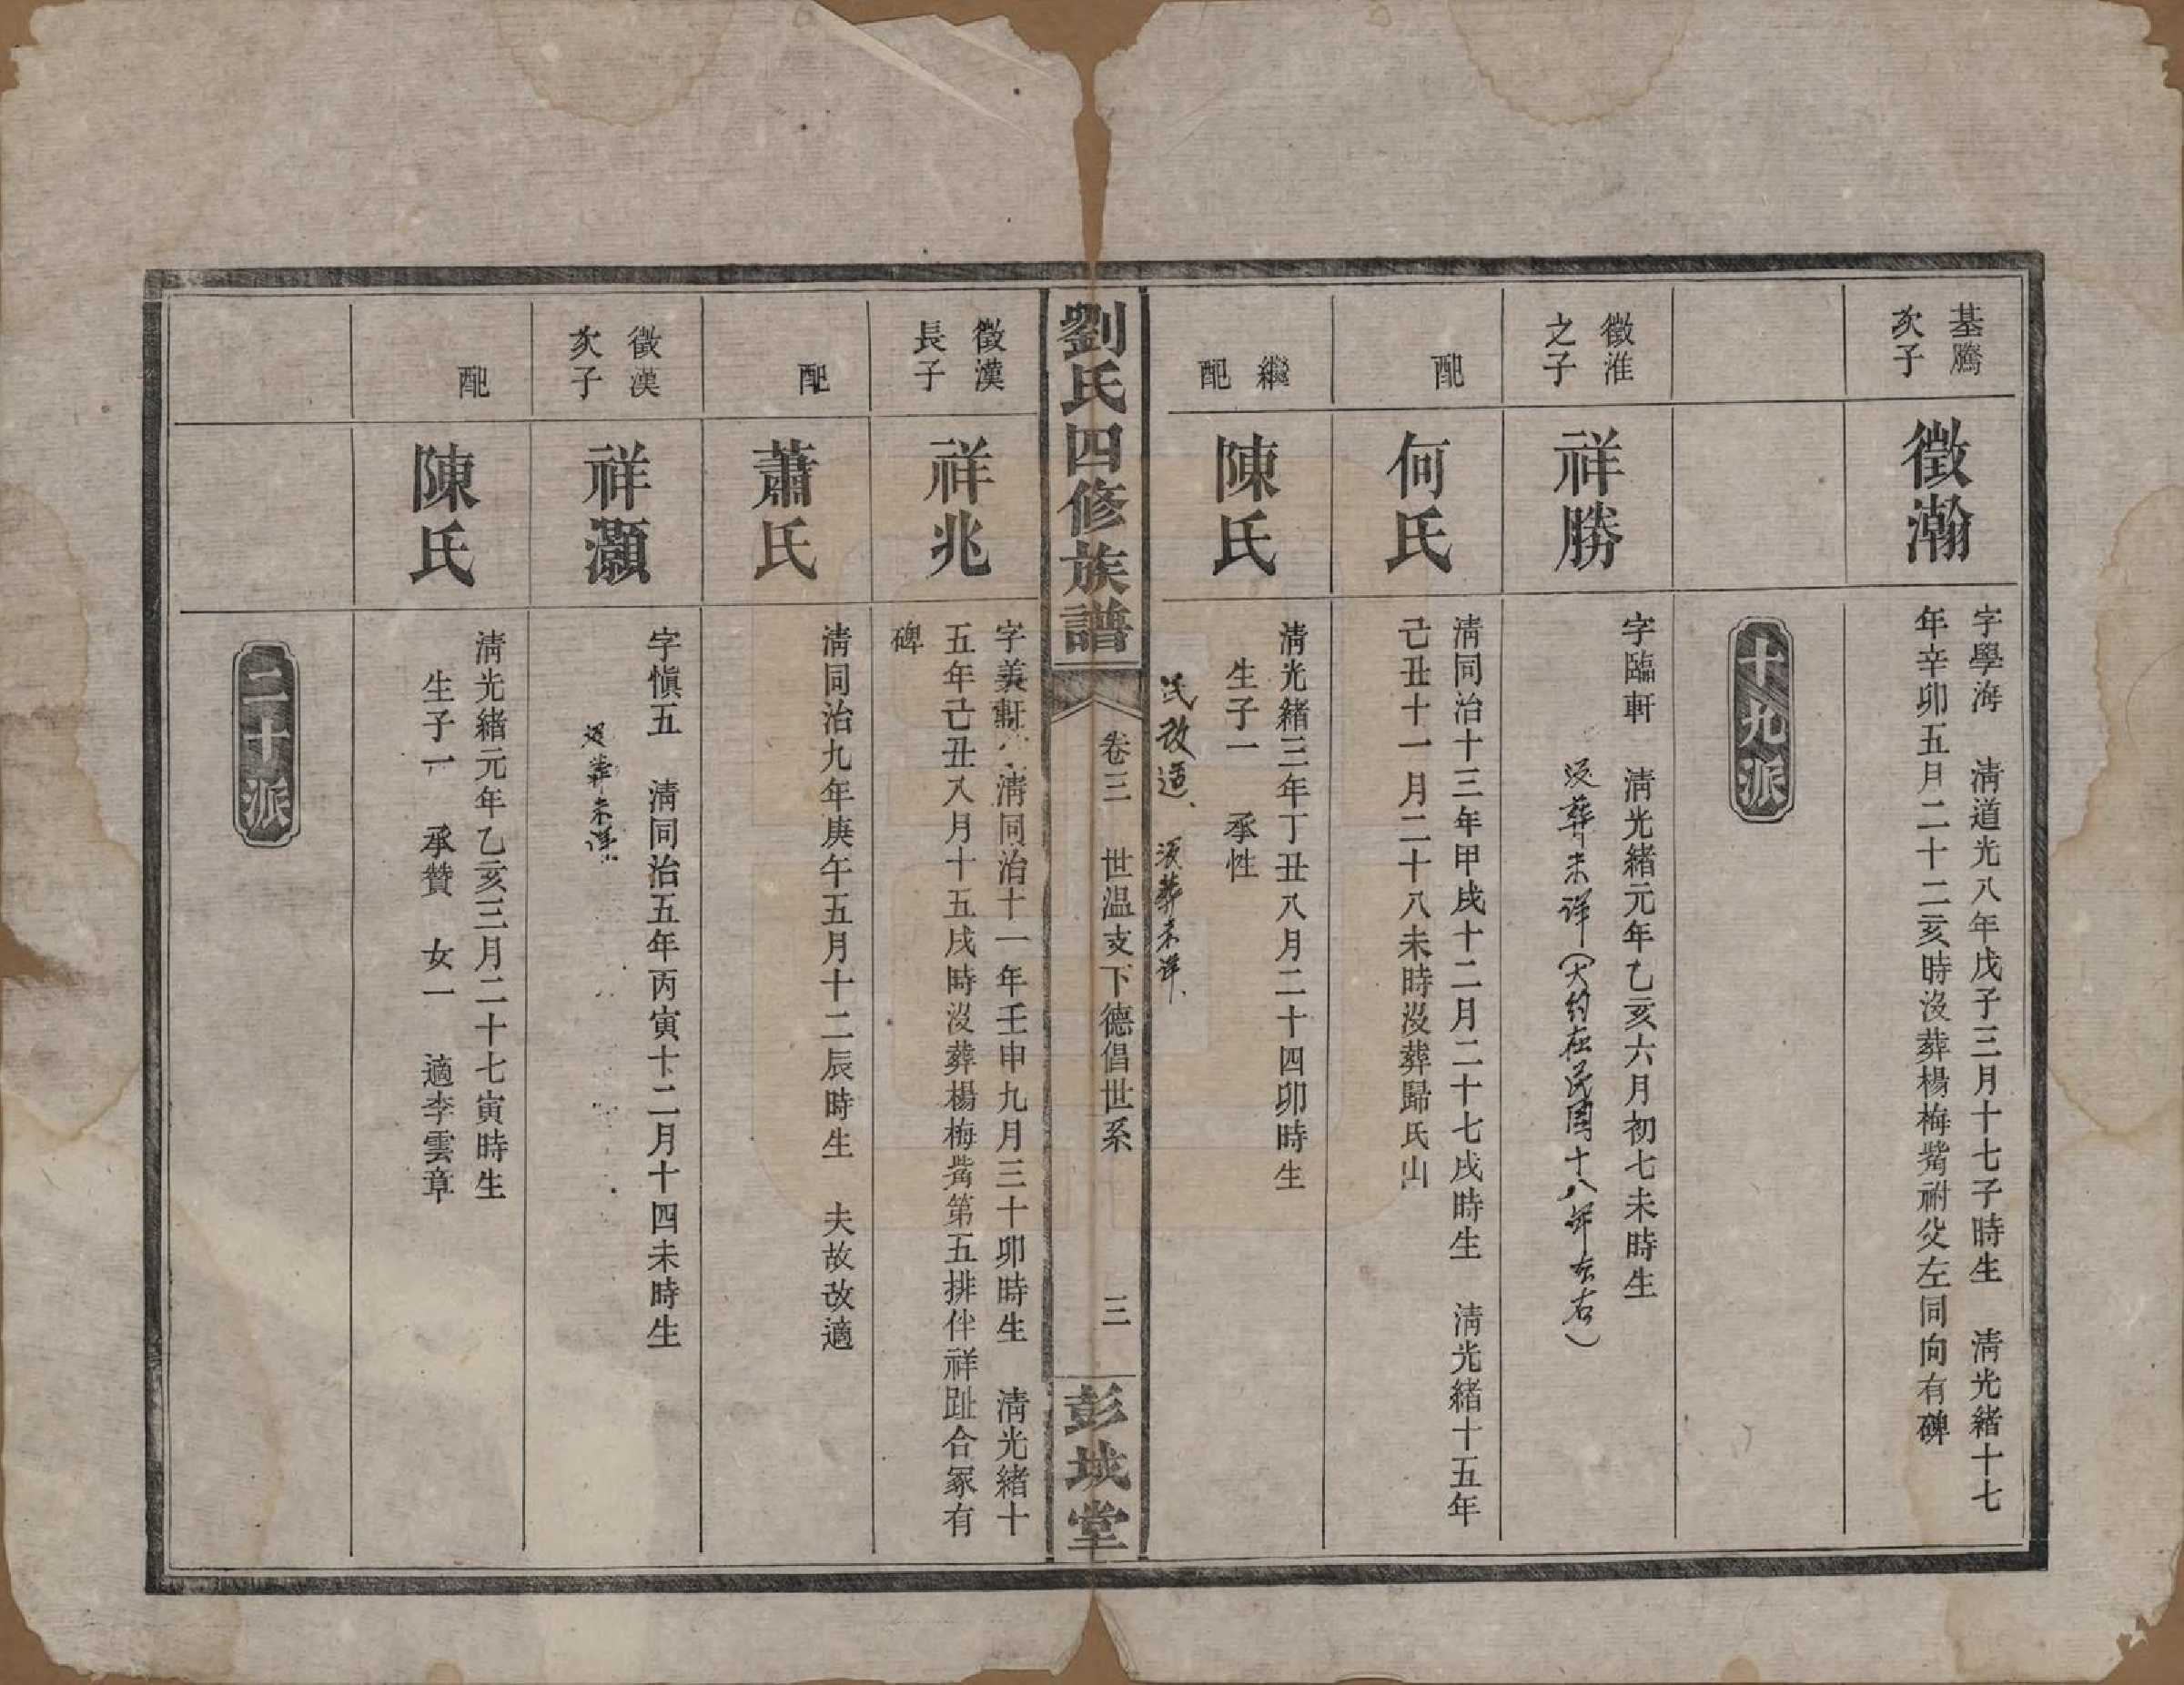 基騰
次子
徵瀚
字學海　清道光八年戊子三月十七子時生　清光緒十七
年辛卯五月二十二亥時沒葬楊梅嘴祔父左同向有碑
十九派
徵淮
之子
祥勝
字臨軒　清光緒元年乙亥六月初七未時生
沒葬未详（大约在民国十八年左右）
配
何氏
清同治十三年甲戌十二月二十七戌時生　清光緒十五年
己丑十一月二十八未時沒葬歸氏山
繼
配
陳氏
清光緒三年丁丑八月二十四卯時生
生子一　承性
氏改适、沒葬未详、
劉氏四修族譜
卷三　世温支下德倡世系
三
彭城堂
徵漢
長子
祥兆
字美軒　清同治十一年壬申九月三十卯時生　清光緒十
五年己丑八月十五戌時沒葬楊梅嘴第五排伴祥趾合冢有
碑
配
蕭氏
清同治九年庚午五月十二辰時生　夫故改適
徵漢
次子
祥灝
字愼五　清同治五年丙寅十二月十四未時生
沒葬未详
配
陳氏
清光緒元年乙亥三月二十七寅時生
生子一　承贊　女一　適李雲章
二十派